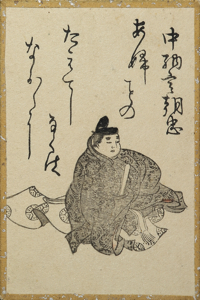 中納言朝忠
あ婦ことの
たえてし
なくは
なか〱に